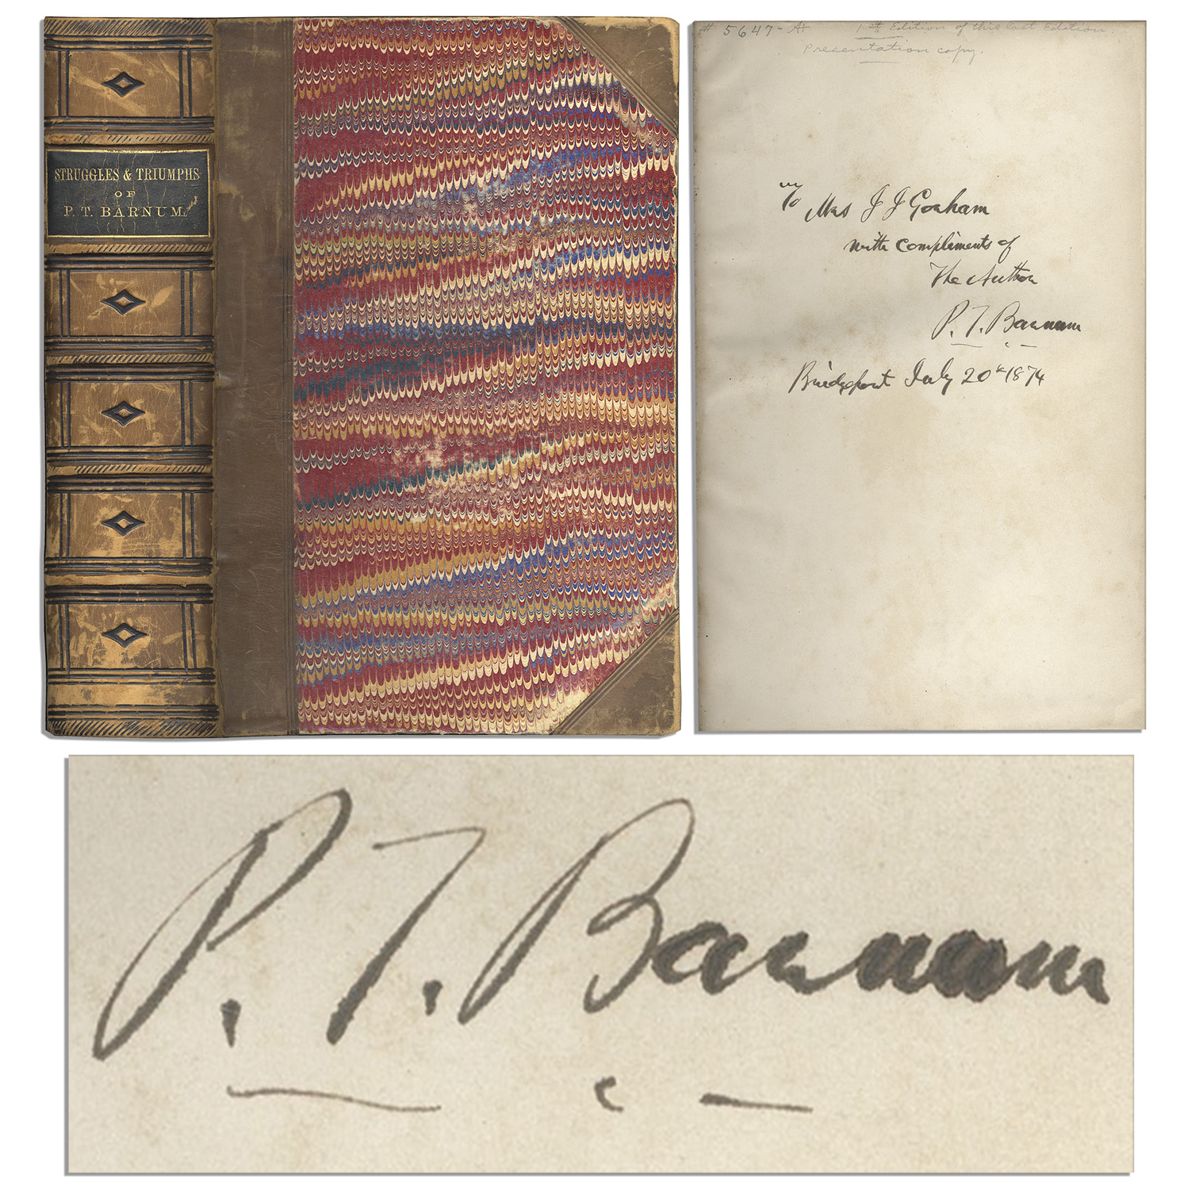 STRUGGLES & TRIUMPHS
OF
P. T. BARNUM.
# 5647-A
Edition of this last Edition
Presentation copy.
To Mrs J J Gorham
with compliments of
The Author
P. T. Barnum
Bridgeport July 20th 1874
P. T. Barnum